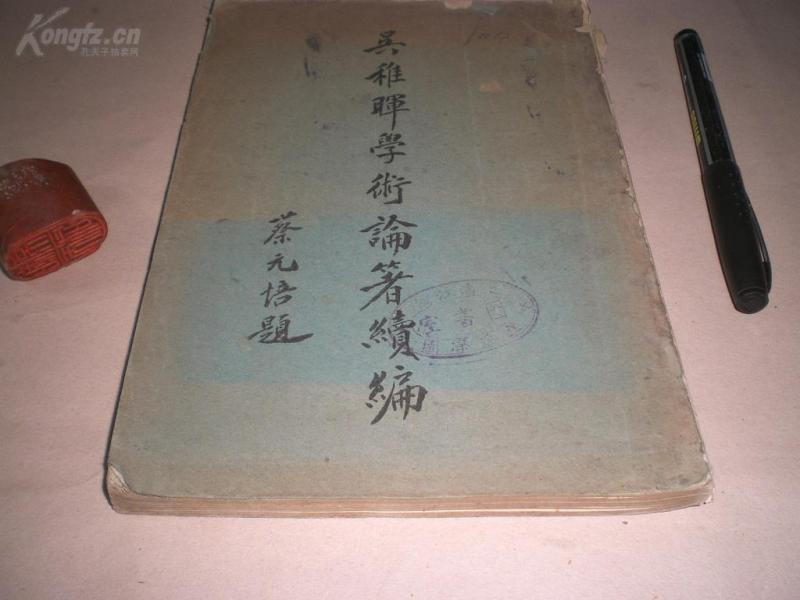 Kongfz.cn
孔夫子拍卖网
吳稚暉學術論箸續編
蔡元培題